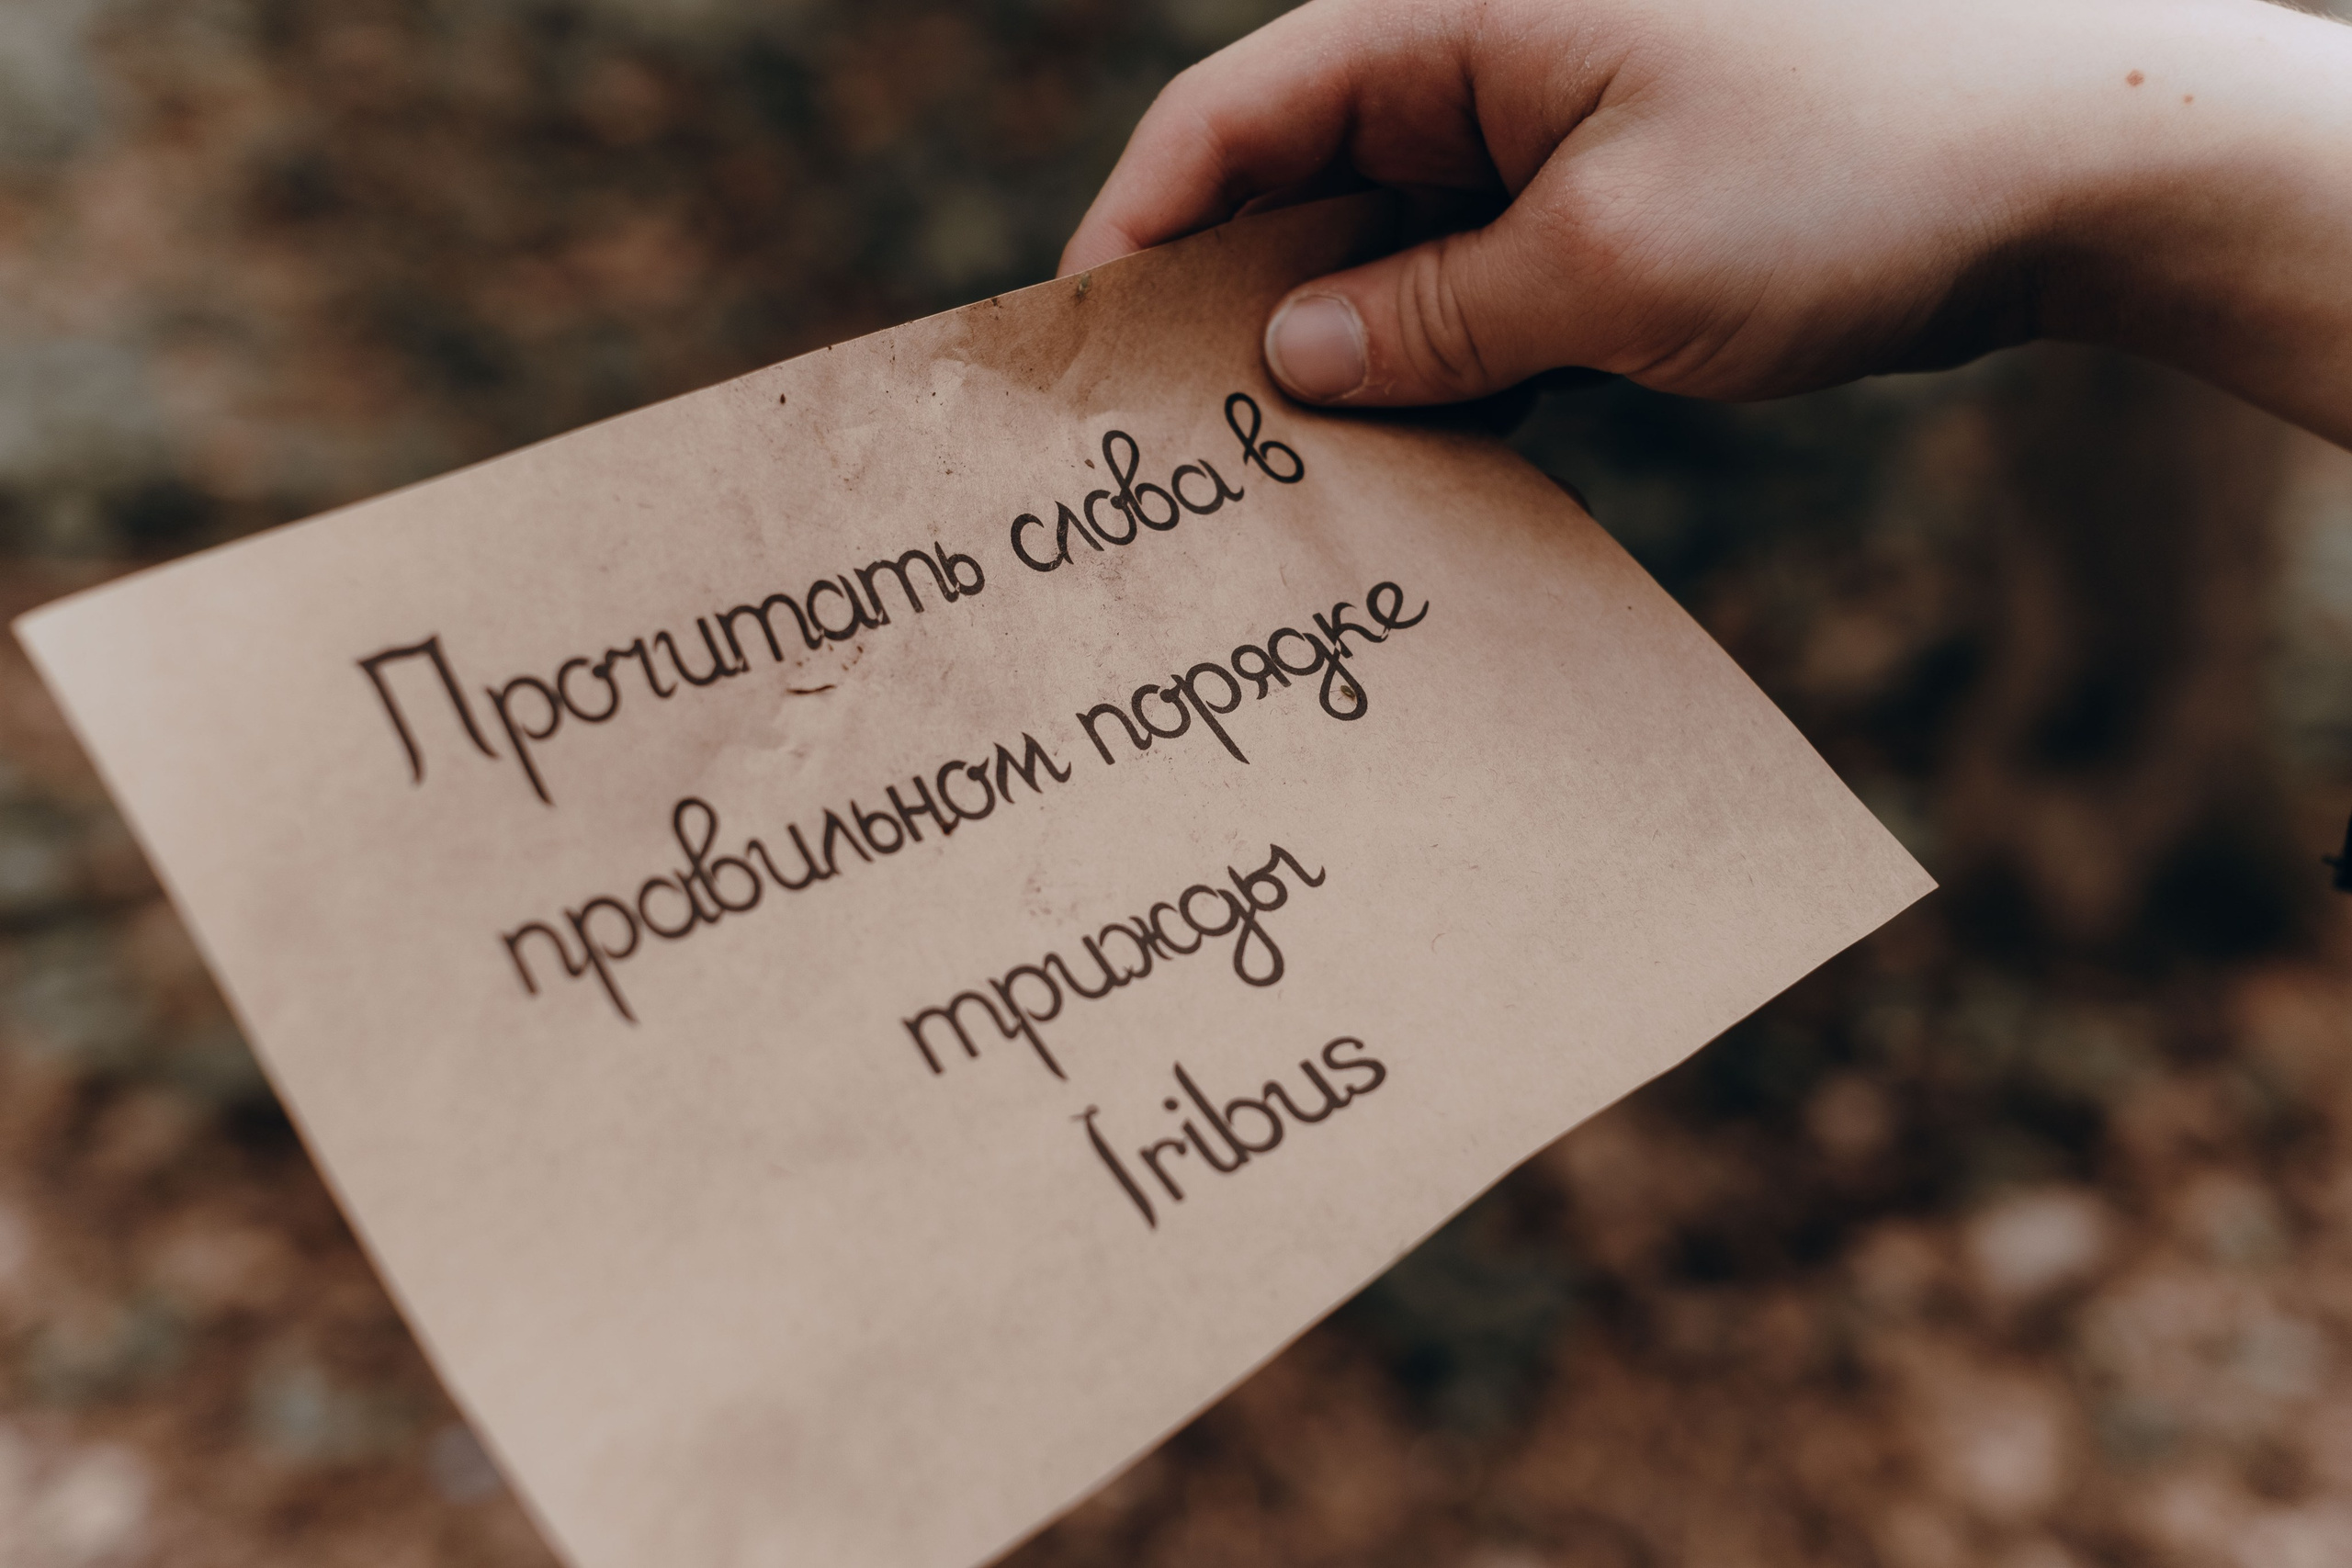 Прочитать слова в
правильном порядке
трижды
Iribus